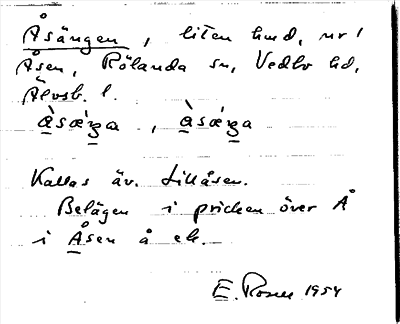 Åsängen, liten lmd, nr 1
Åsen, Rölanda sn, Vedbo hd,
Älvsb. l.
àsæ̀ŋa, àsæ̀ŋa
Kallas äv. Lillåsen.
Belägen i pricken över Å
i Åsen å ek.
E. Rosell 1954